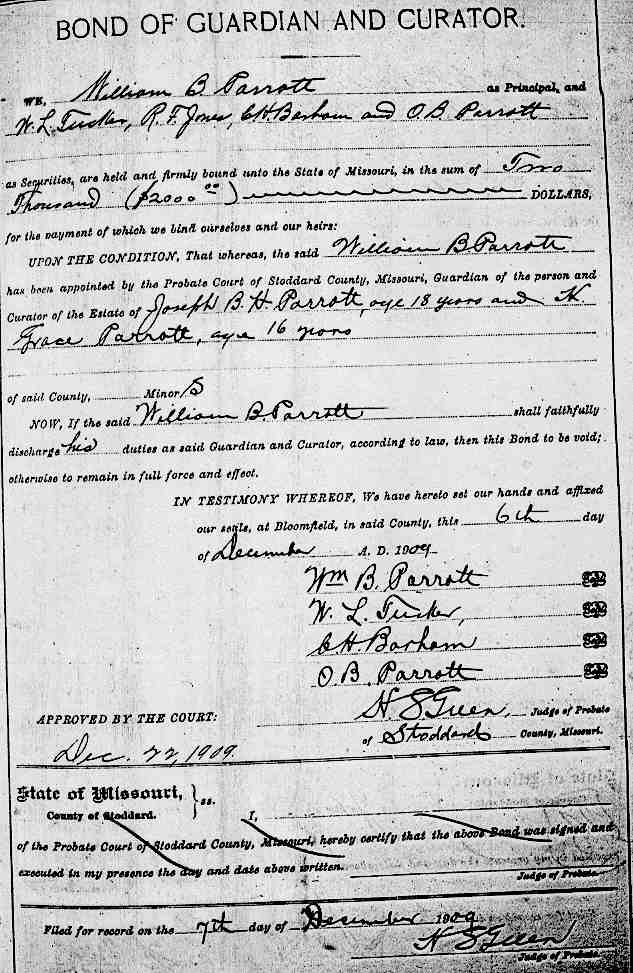 BOND OF GUARDIAN AND CURATOR.
WE, William B Parrott as Principal, and
W. L. Tucker, R. F. Jones, C H. Barham and O. B. Parrott
as Securities, are held and firmly bound unto the State of Missouri, in the sum of Two
Thousand ($2000 00) DOLLARS,
for the payment of which we bind ourselves and our heirs:
UPON THE CONDITION, That whereas, the said William B Parrott
has been appointed by the Probate Court of Stoddard County, Missouri, Guardian of the person and
Curator of the Estate of Joseph B. H. Parrott, age 18 years and H.
Grace Parrott, age 16 years
of said County, Minor S
NOW, If the said William B. Parrott shall faithfully
discharge his duties as said Guardian and Curator, according to law, then this Bond to be void;
otherwise to remain in full force and effect.
IN TESTIMONY WHEREOF, We have hereto set our hands and affixed
our seals, at Bloomfield, in said County, this 6th day
of December A. D. 1909
Wm B. Parrott
W. L. Tucker,
C. H. Barham
O. B. Parrott
H S Green, Judge of Probate
APPROVED BY THE COURT:
of Stoddard County, Missouri.
Dec. 22, 1909
State of Missouri, } ss.
County of Stoddard.
I,
of the Probate Court of Stoddard County, Missouri, hereby certify that the above Bond was signed and
executed in my presence the day and date above written.
Judge of Probate.
Filed for record on the 7th day of December 1909
H S Green
Judge of Probate.